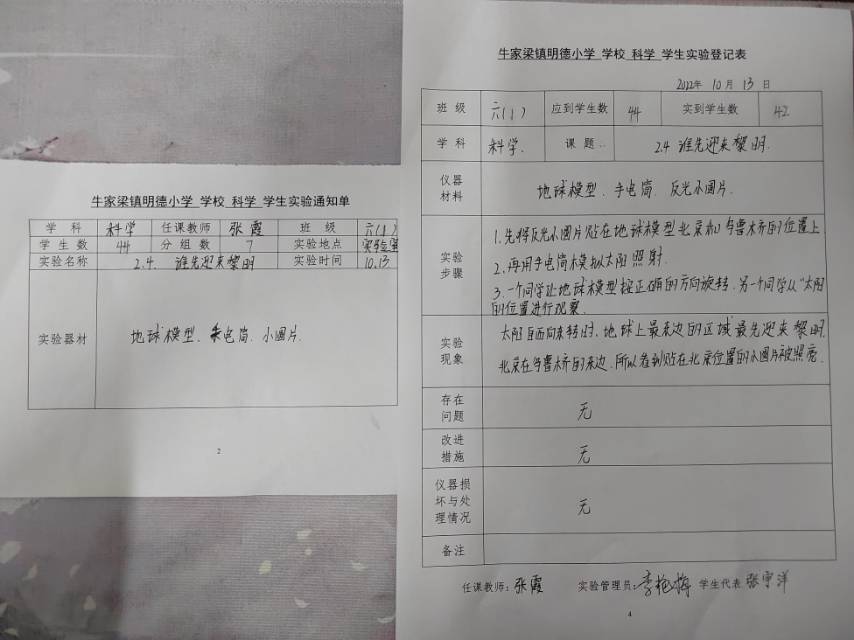 牛家梁镇明德小学 学校 科学 学生实验通知单
学 科 科学 任课教师 张霞 班 级 六(1)
学 生 数 44 分 组 数 7 实验地点 实验室
实验名称 2.4. 谁先迎来黎明 实验时间 10.13
实验器材 地球模型、手电筒、小圆片.
2
牛家梁镇明德小学 学校 科学 学生实验登记表
2022年 10月 13日
班 级 六(1) 应到学生数 44 实到学生数 42
学 科 科学. 课 题 .. 2.4 谁先迎来黎明.
仪器
材料
地球模型、手电筒、反光小圆片.
实验
步骤
1.先将反光小圆片贴在地球模型北京和乌鲁木齐的位置上
2.再用手电筒模拟太阳照射.
3.一个同学让地球模型按正确的方向旋转.另一个同学从“太阳
的位置进行观察.
实验
现象
太阳自西向东转时.地球上最东边的区域最先迎来黎明.
北京在乌鲁木齐的东边.所以看到贴在北京位置的小圆片先被照亮.
存在
问题
无
改进
措施
无
仪器损
坏与处
理情况
无
备注
任课教师：张霞 实验管理员：李艳梅 学生代表 张宇洋
4